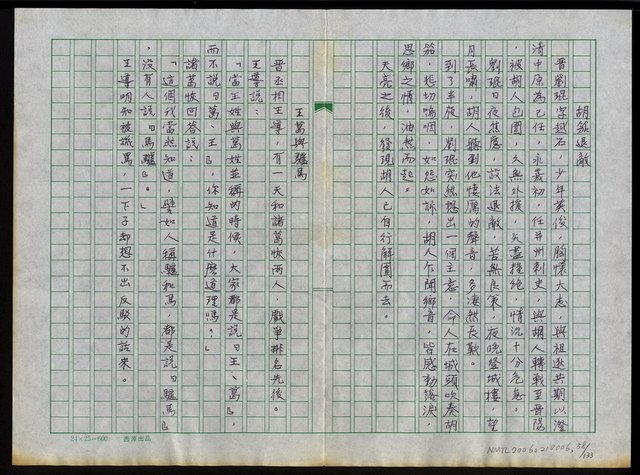 胡笳退敵
晉劉琨字越石,少年英俊,胸懷大志,與祖逖共期以澄
清中原為己任,永嘉初,任并州刺史,與胡人轉戰至晉陽
,被胡人包圍,久無外援,矢盡援絶,情況十分危急。
劉琨日夜焦慮,設法退敵,苦無良策,夜晚登城樓,望
月長嘯,胡人聽到他悽厲的聲音,多淒然長歎。
到了半夜,劉琨突然想出一個主意,令人在城頭吹奏胡
笳,悲切嗚咽,如怨如訴,胡人乍聞鄉音,皆感動落淚,
思鄉之情,油然而起。
天亮之後,發現胡人已自行解圍而去。
王葛與驢馬
晉丞相王導,有一天和諸葛恢兩人,戲爭排名先後。
王導說:
「當王姓與葛姓並稱的時候,大家都是說『王、葛』,
而不說『葛、王』,你知道是什麼道理嗎?」
諸葛恢回答說:
「這個我當然知道,譬如人稱驢和馬,都是說『驢馬』
,沒有人說『馬驢』。」
王導明知被譏罵,一下子却想不出反駁的話來。
24×25=600 西源出品
NMTL20060210006, 58/133